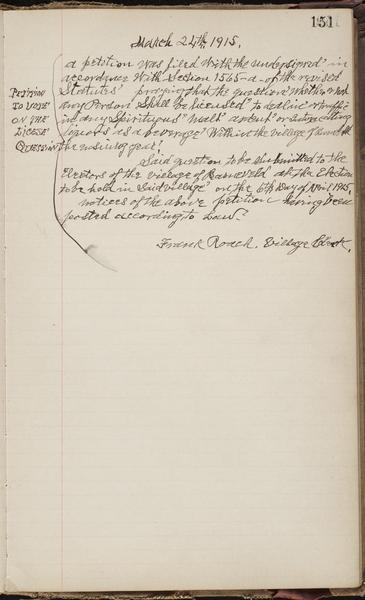 151
March 24th, 1915.
a petition was filed with the undersigned in
accordance with Section 1565-a- of the revised
Statutes praying that the question whether or not
any Person Shall be licensed to deal in or traffic
in any Spirituous malt ardent or intoxicating
liquors as a beverage within the village of
the ensuing year.
Said question to be submitted to the
Electors of the village of Barneveld at the Election
to be held in Said village on the 6th day of April 1915.
notices of the above petition having been
posted according to Law.
Frank Roach. Village Clerk.
Petition
to vote
on the
License
Question